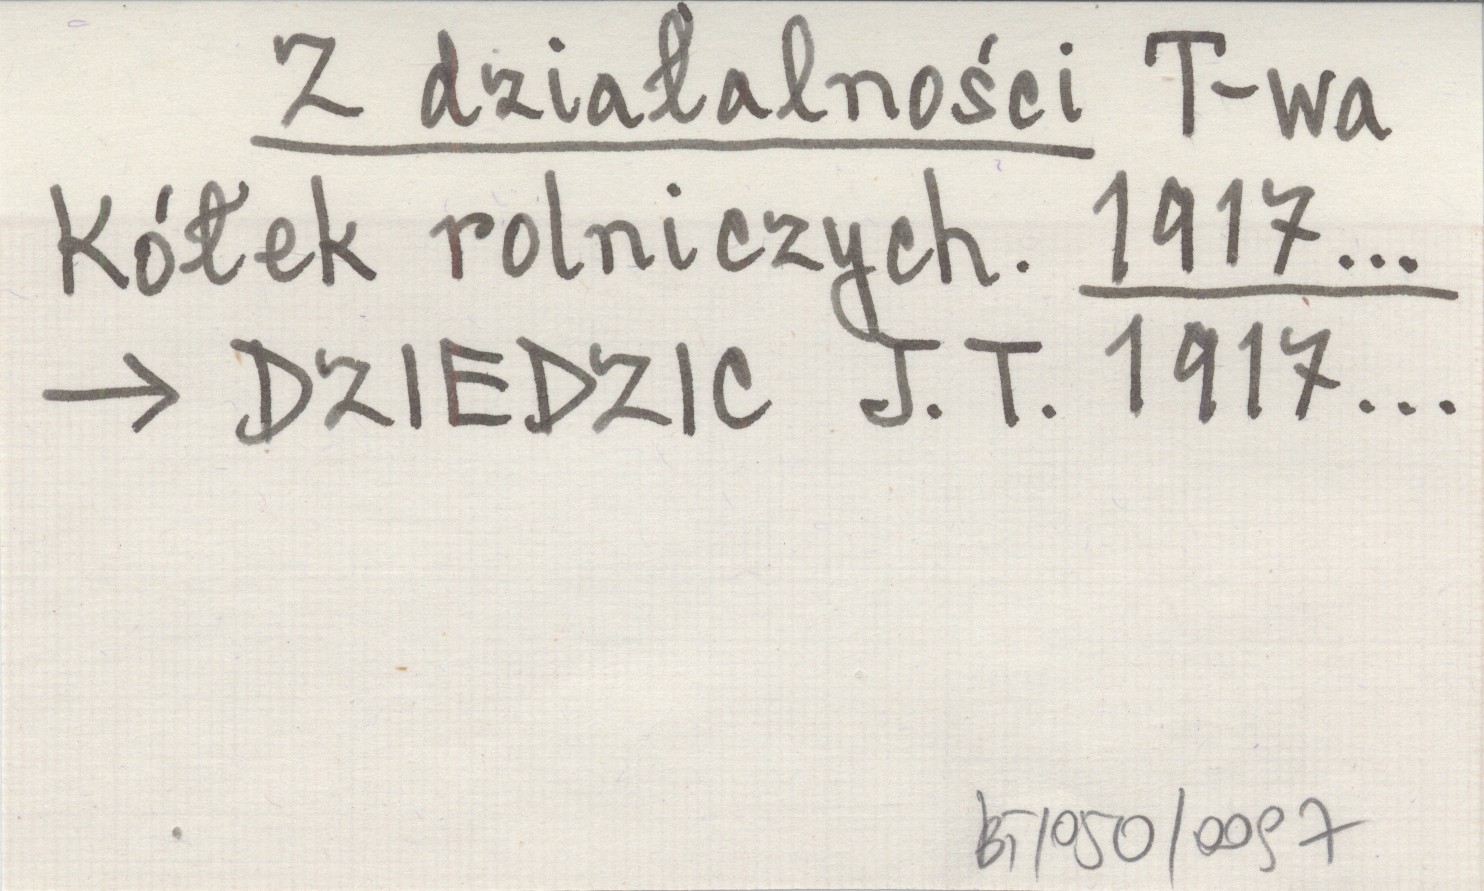 Z działalności T-wa
Kółek rolniczych. 1917...
→ DZIEDZIC J. T. 1917...
BT/050/0097